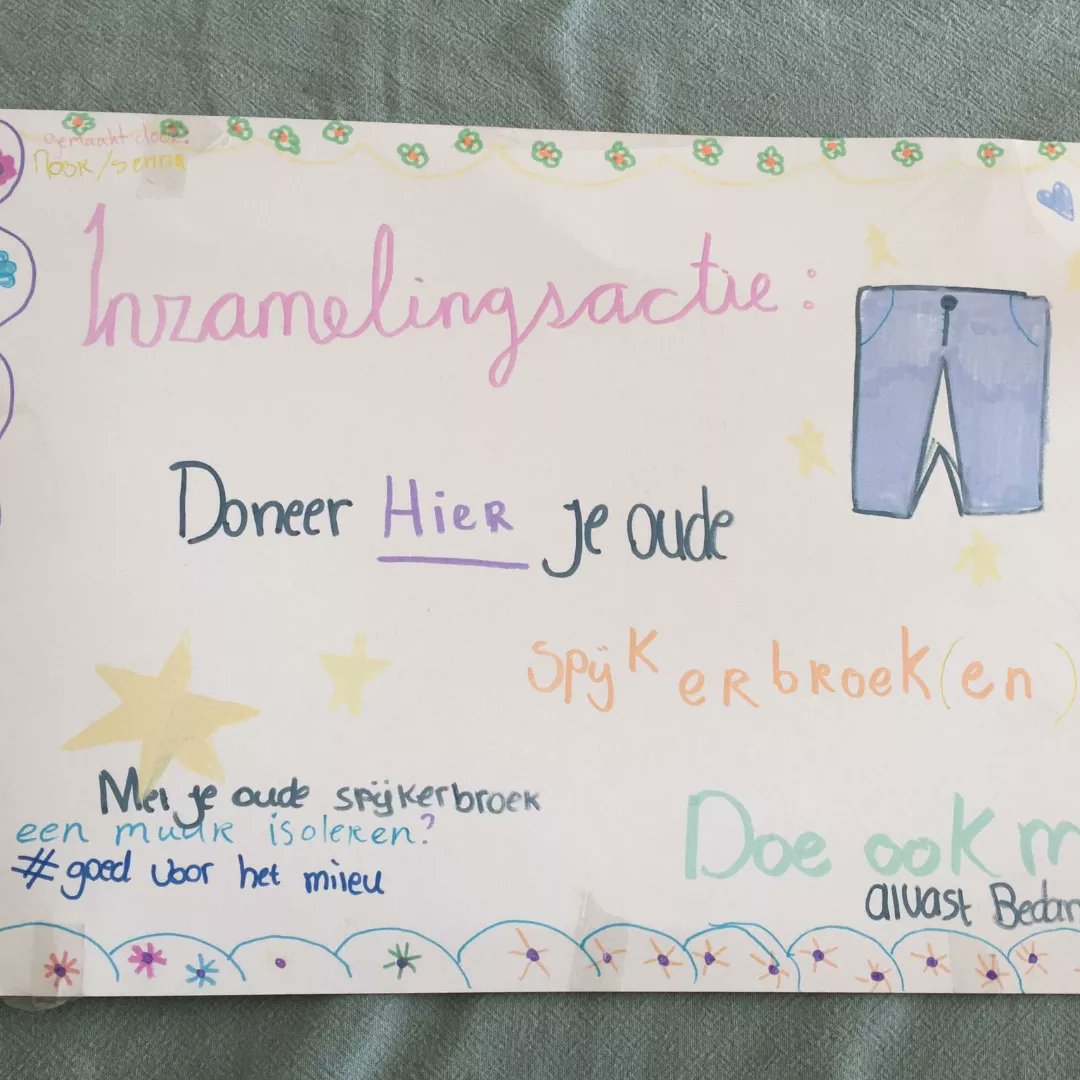 gemaakt door:
Noor/senna
Inzamelingsactie:
Doneer Hier je oude
spijkerbroek(en)
Met je oude spijkerbroek
een muur isoleren?
#goed voor het milieu
Doe ook m
alvast Bedan